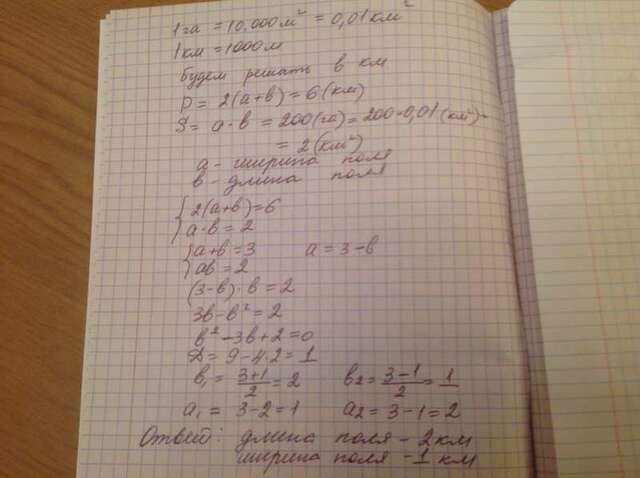 1га = 10,000м² = 0,01км²
1км = 1000м
Будем решать в км
P = 2(а+в) = 6(км)
S = а·в = 200(га) = 200·0,01(км²) =
= 2(км²)
а - ширина поля
в - длина поля
{ 2(а+в)=6
а·в = 2
{ а+в = 3 а = 3-в
ав = 2
(3-в)·в = 2
3в - в² = 2
в² - 3в + 2 = 0
D = 9 - 4·2 = 1
в₁ = (3+1)/2 = 2 в₂ = (3-1)/2 = 1
а₁ = 3-2 = 1 а₂ = 3-1 = 2
Ответ: длина поля - 2км
ширина поля - 1 км